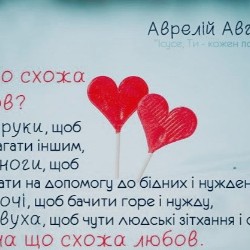 Аврелій Авг
о схожа
ов?
руки, щоб
агати іншим,
ноги, щоб
ати на допомогу до бідних і нужден
очі, щоб бачити горе і нужду,
вуха, щоб чути людські зітхання і с
на що схожа любов.